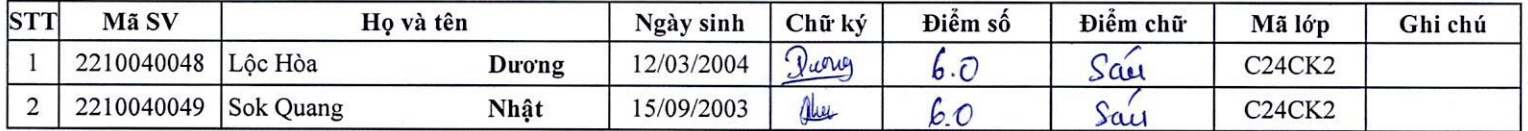 STT Mã SV Họ và tên Ngày sinh Chữ ký Điểm số Điểm chữ Mã lớp Ghi chú
1 2210040048 Lộc Hòa Dương 12/03/2004 Dương 6.0 Sáu C24CK2
2 2210040049 Sok Quang Nhật 15/09/2003 6.0 Sáu C24CK2